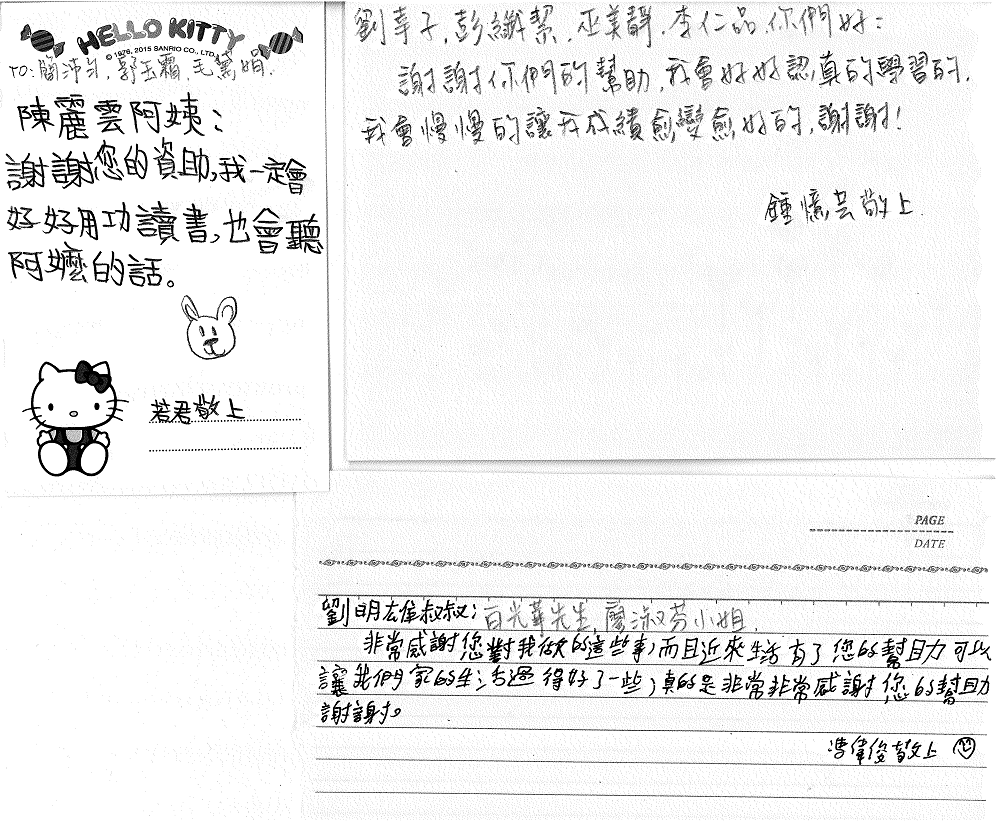 HELLO KITTY
© 1976, 2015 SANRIO CO., LTD.
TO:簡沛勻,郭玉霜,毛篤娟.
陳麗雲阿姨:
謝謝您的資助,我一定會
好好用功讀書,也會聽
阿嬤的話。
若君敬上
劉葦子,彭纖絜,巫美靜.李仁品,你們好:
謝謝你們的幫助,我會好好認真的學習的.
我會慢慢的讓我成績愈變愈好的,謝謝!
鍾憶芸敬上.
PAGE
DATE
劉明雄叔叔:百光華先生,廖淑芬小姐.
非常感謝您對我做的這些事,而且近來生活有了您的幫助可以
讓我們家的生活過得好了一些,真的是非常非常感謝您的幫助
謝謝。
偉俊敬上